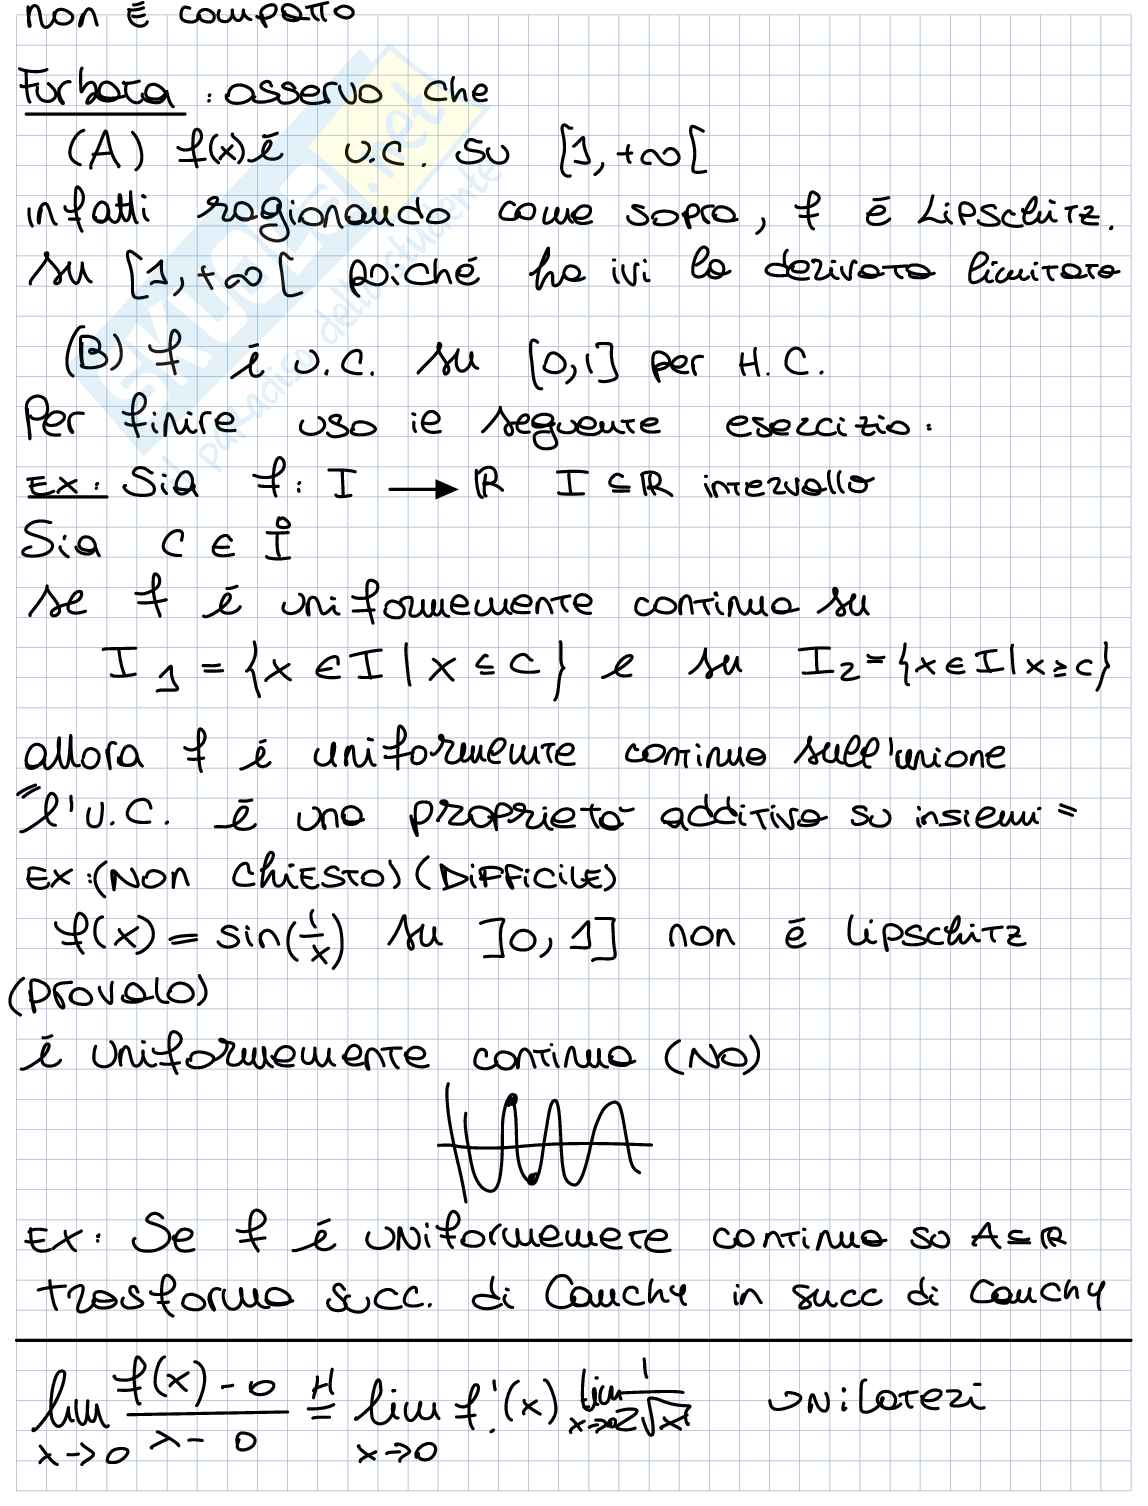 non è compatto
Furbata : osservo che
(A) f(x) è U.C. su [1, +∞[
infatti ragionando come sopra, f è Lipschitz.
su [1, +∞[ poiché ha ivi la derivata limitata
(B) f è U.C. su [0,1] per H.C.
Per finire uso ie seguente esercizio.
EX: Sia f: I → ℝ I ⊆ ℝ intervallo
Sia c ∈ I̊
se f è uniformemente continua su
I₁ = {x ∈ I | x ≤ c} e su I₂ = {x ∈ I | x ≥ c}
allora f è uniformemte continua sull'unione
"l'U.C. è una proprietà additiva su insiemi"
EX: (NON CHIESTO) (DIFFICILE)
f(x) = sin(1/x) su ]0, 1] non è lipschitz
(Provalo)
è uniformemente continua (NO)
EX: Se f è uniformemete continua su A ⊆ ℝ
trasforma succ. di Cauchy in succ di Cauchy
lim x→0 (f(x) - 0)/(x - 0) =ᴴ lim x→0 f'(x) lim x→0 1/(2√x) unilateri
SKUOLA.net
il paradiso dello studente